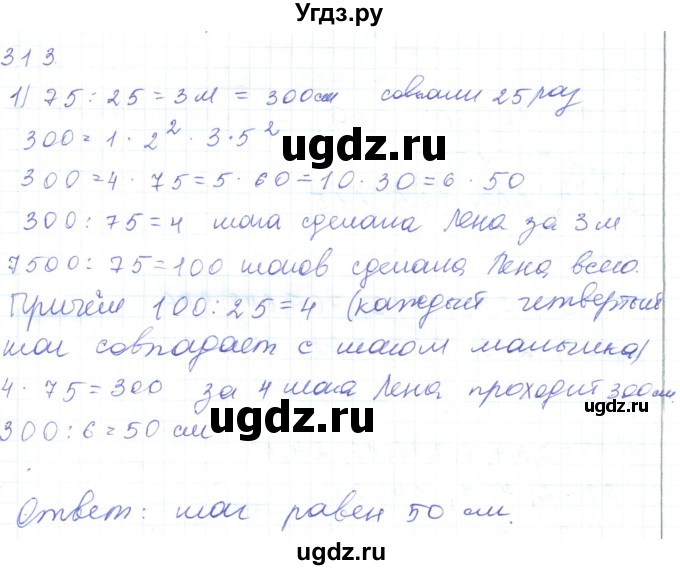 Угдз.ру
313.
1) 75 : 25 = 3 м = 300 см совпали 25 раз
300 = 1 · 2² · 3 · 5²
ugdz.ru
300 = 4 · 75 = 5 · 60 = 10 · 30 = 6 · 50
300 : 75 = 4 шага сделала Лена за 3 м
ugdz.ru
7500 : 75 = 100 шагов сделала Лена всего.
Причём 100 : 25 = 4 (каждый четвертый
шаг совпадает с шагом мальчика)
4 · 75 = 300 за 4 шага Лена проходит 300 см.
ugdz.ru
300 : 6 = 50 см
ugdz.ru
Ответ: шаг равен 50 см.
ugdz.ru
ugdz.ru